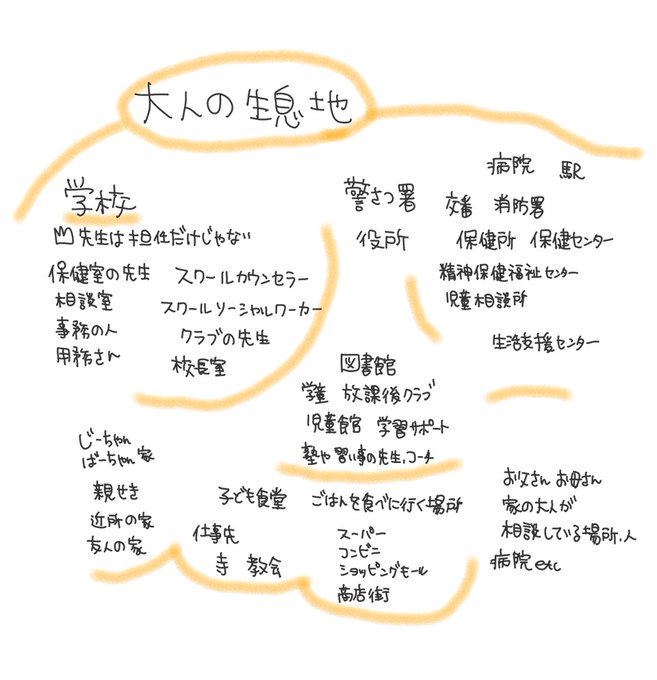 大人の生息地
学校
凹先生は担任だけじゃない
保健室の先生 スクールカウンセラー
相談室 スクールソーシャルワーカー
事務の人 クラブの先生
用務さん 校長室
病院 駅
警さつ署 交番 消防署
役所 保健所 保健センター
精神保健福祉センター
児童相談所
生活支援センター
図書館
学童 放課後クラブ
児童館 学習サポート
塾や習い事の先生、コーチ
じーちゃん
ばーちゃん家
親せき
近所の家
友人の家
子ども食堂 ごはんを食べに行く場所
仕事先
寺 教会
スーパー
コンビニ
ショッピングモール
商店街
お父さん お母さん
家の大人が
相談している場所、人
病院etc